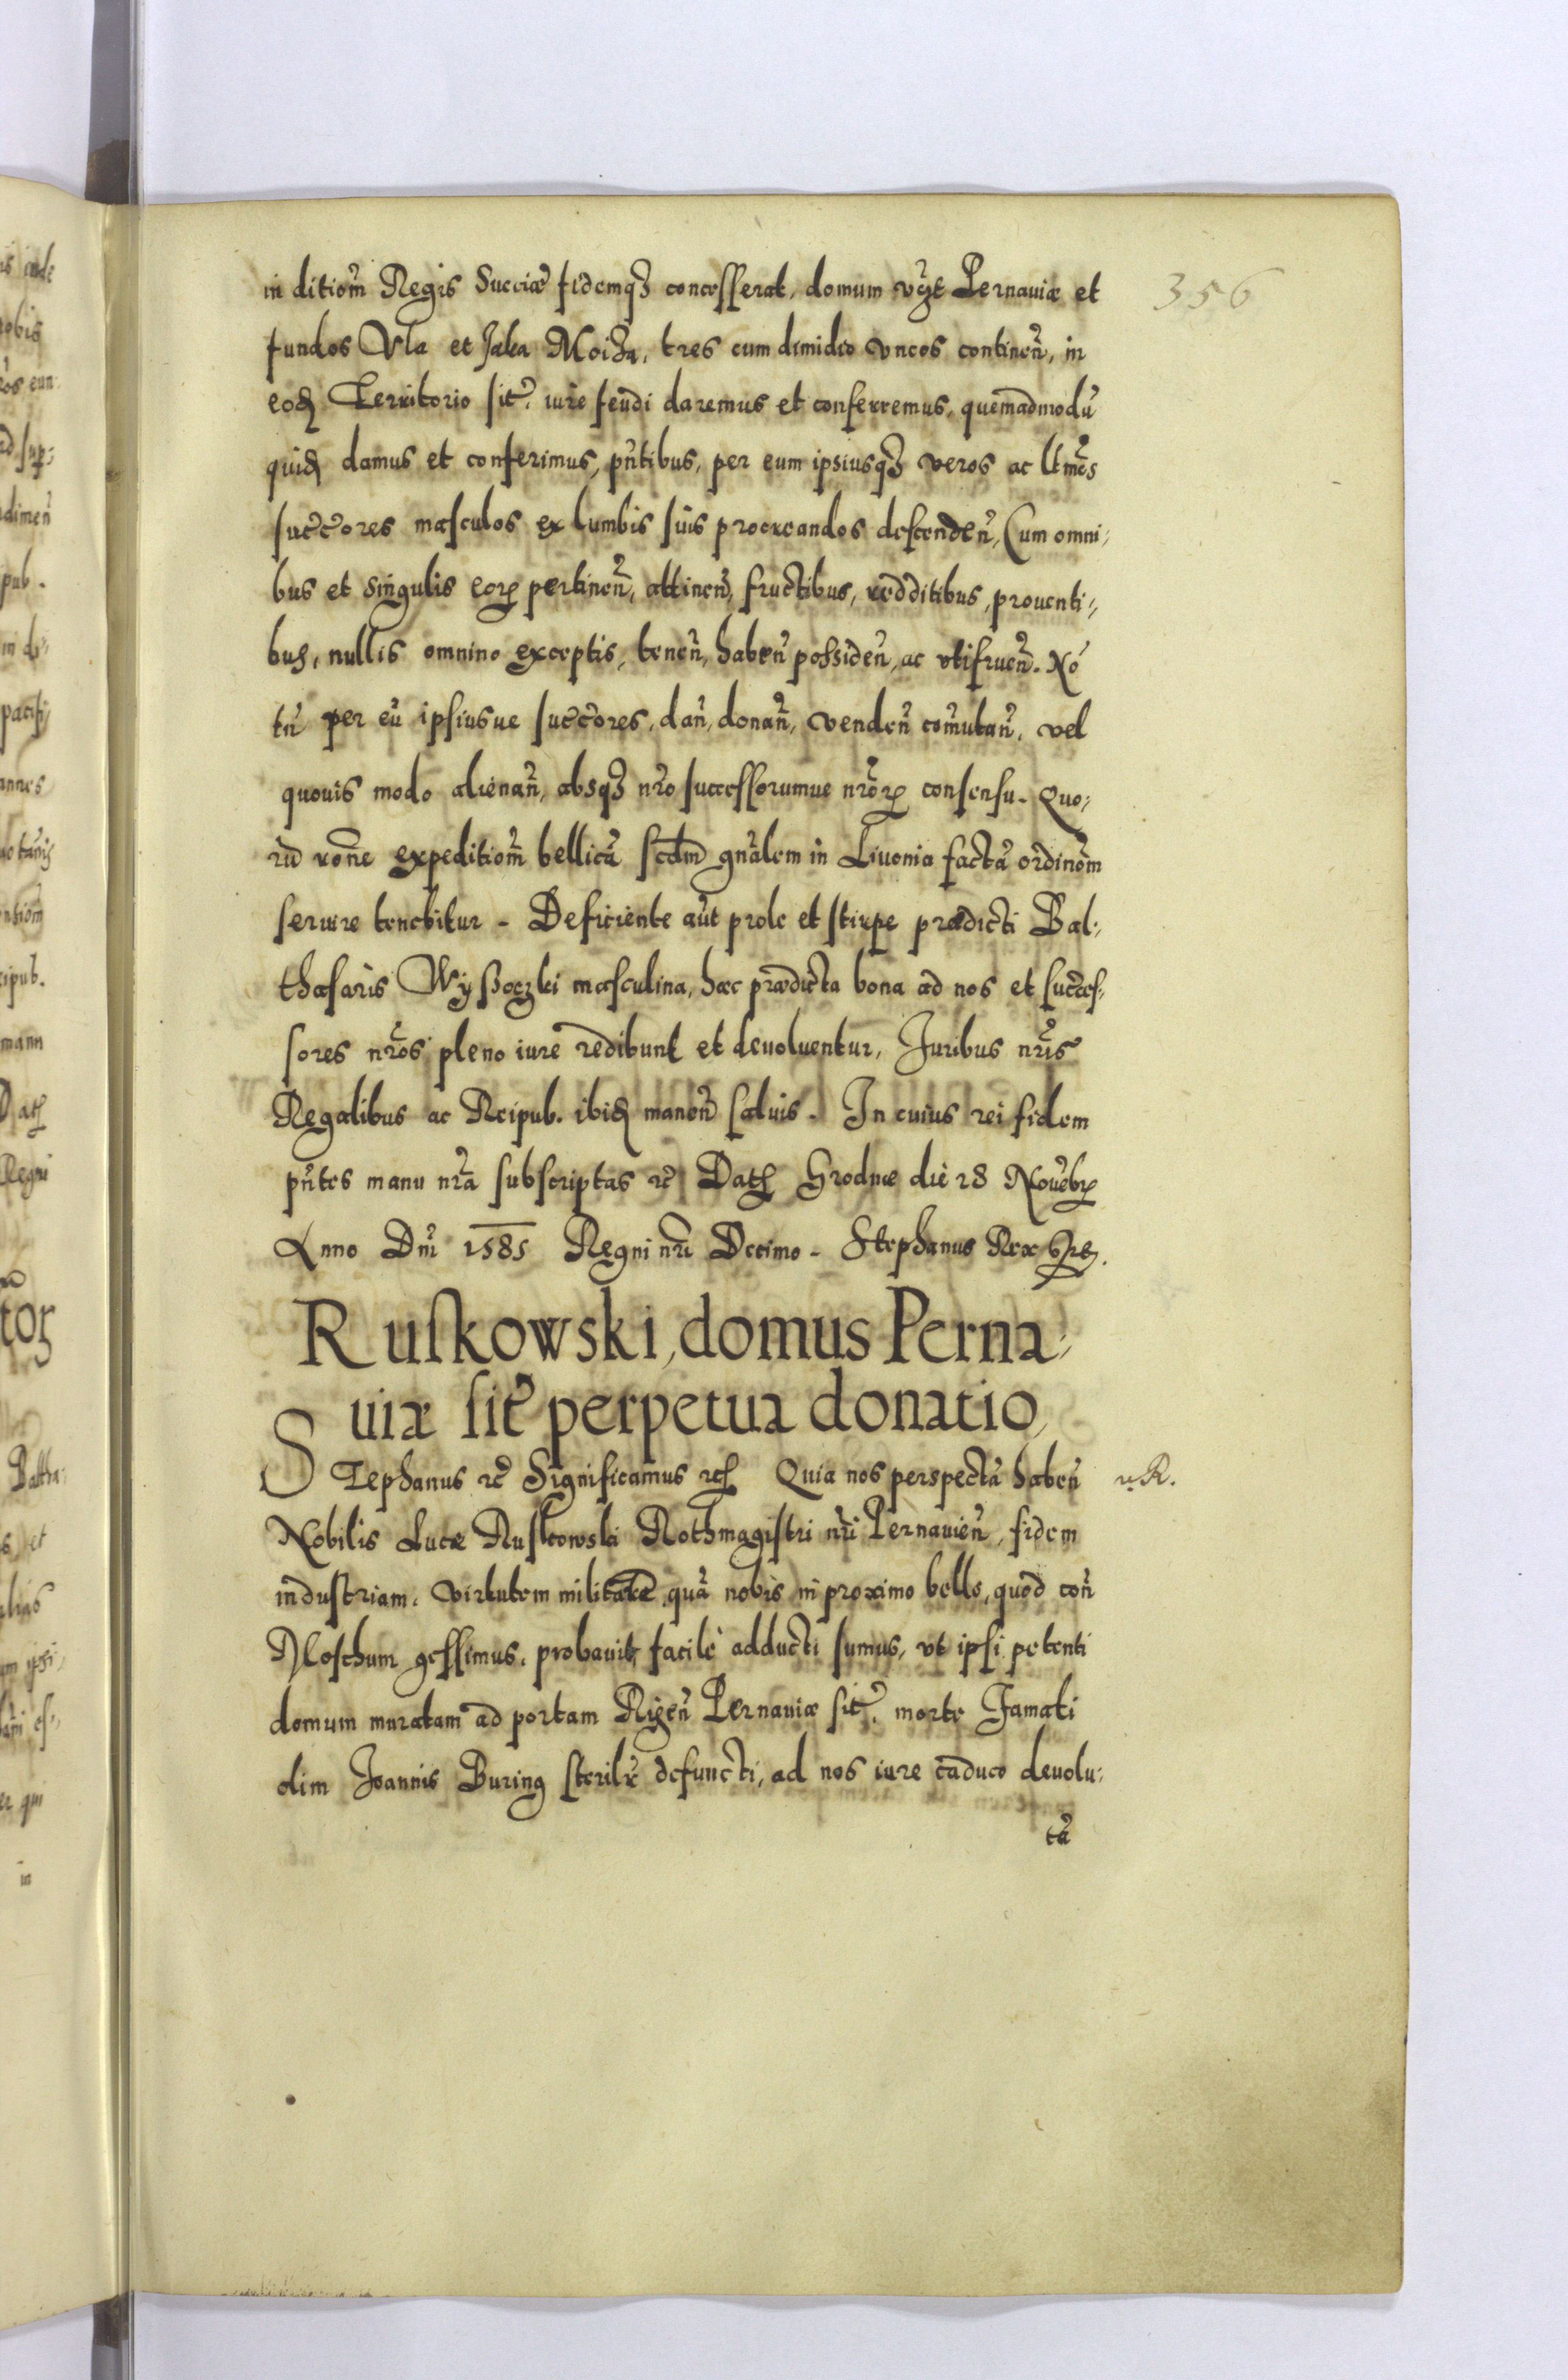 356
in ditiom̃ Regis Sueciæ fidemq3 concesserat, domum Pernauiæ et
fundos Vla et Jaka Moiza, tres cum dimidio vncos continen̄, in
eod̄ Territorio sit̄. iure feudi daremus et conferremus, quemadmodū
quid̄ damus et conferimus, pñtibus, per eum ipsiusq3 veros ac ltm̃os
succ̄ores masculos ex lumbis suis procreandos descenden̄, Cum omni,
bus et singulis eor pertinen̄, attinen̄, fructibus, redditibus, prouenti,
bus, nullis omnino exceptis, tenen̄, haben̄ possiden̄, ac vtifruen̄. Nō
tn̄ per eū ipsiusue succ̄ores, dan̄, donan̄, venden̄ com̄utan̄, vel
quouis modo alienan̄, absq3 nr̃o successorumue nr̃or consensu. Quo,
rū rōne expeditiom̃ bellicā scdm̃ gn̄alem in Liuonia factā ordinōm
seruire tenebitur. Deficiente aūt prole et stirpe prædicti Bal,
thasaris Wyßoczki masculina, hæc prædicta bona ad nos et succes,
sores nr̃os pleno iure redibunt et deuoluentur, Iuribus nr̃is
Regalibus ac Reipub. ibid̄ manen̄ saluis. In cuius rei fidem
pñtes manu nr̃a subscriptas rc̄ Dat Grodnæ die 28 Nouēbr
Anno Dn̄i 1585 Regni nr̃i Decimo. Stephanus Rex
Ruskowski, domus Perna,
uiæ sit̄ perpetua donatio,
STephanus rc̄ Significamus rc̄ Quia nos perspectā haben̄
Nobilis Lucæ Ruskowski Rothmagistri nr̃i Pernauien̄, fidem
industriam, virtutem militarē, quā nobis in proximo bello, quod con̄
Moschum gessimus, probauit, facilè adducti sumus, vt ipsi petenti
domum muratam ad portam Rigen̄ Pernauiæ sit̄. morte Famati
olim Joannis Buring sterilr̄ defuncti, ad nos iure caduco deuolu,
tā